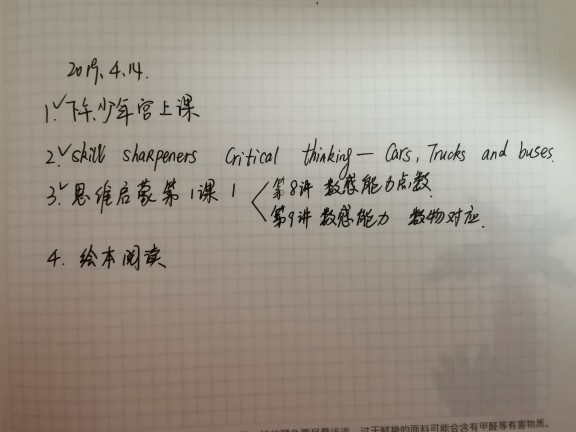 2019.4.14.
1.✓下午少年宫上课
2.✓skill sharpeners Critical thinking — Cars, Trucks and buses.
3.✓思维启蒙第1课1 第8讲 数感能力点数.
第9讲 数感能力 数物对应.
4. 绘本阅读
过于鲜艳的面料可能会含有甲醛等有害物质。